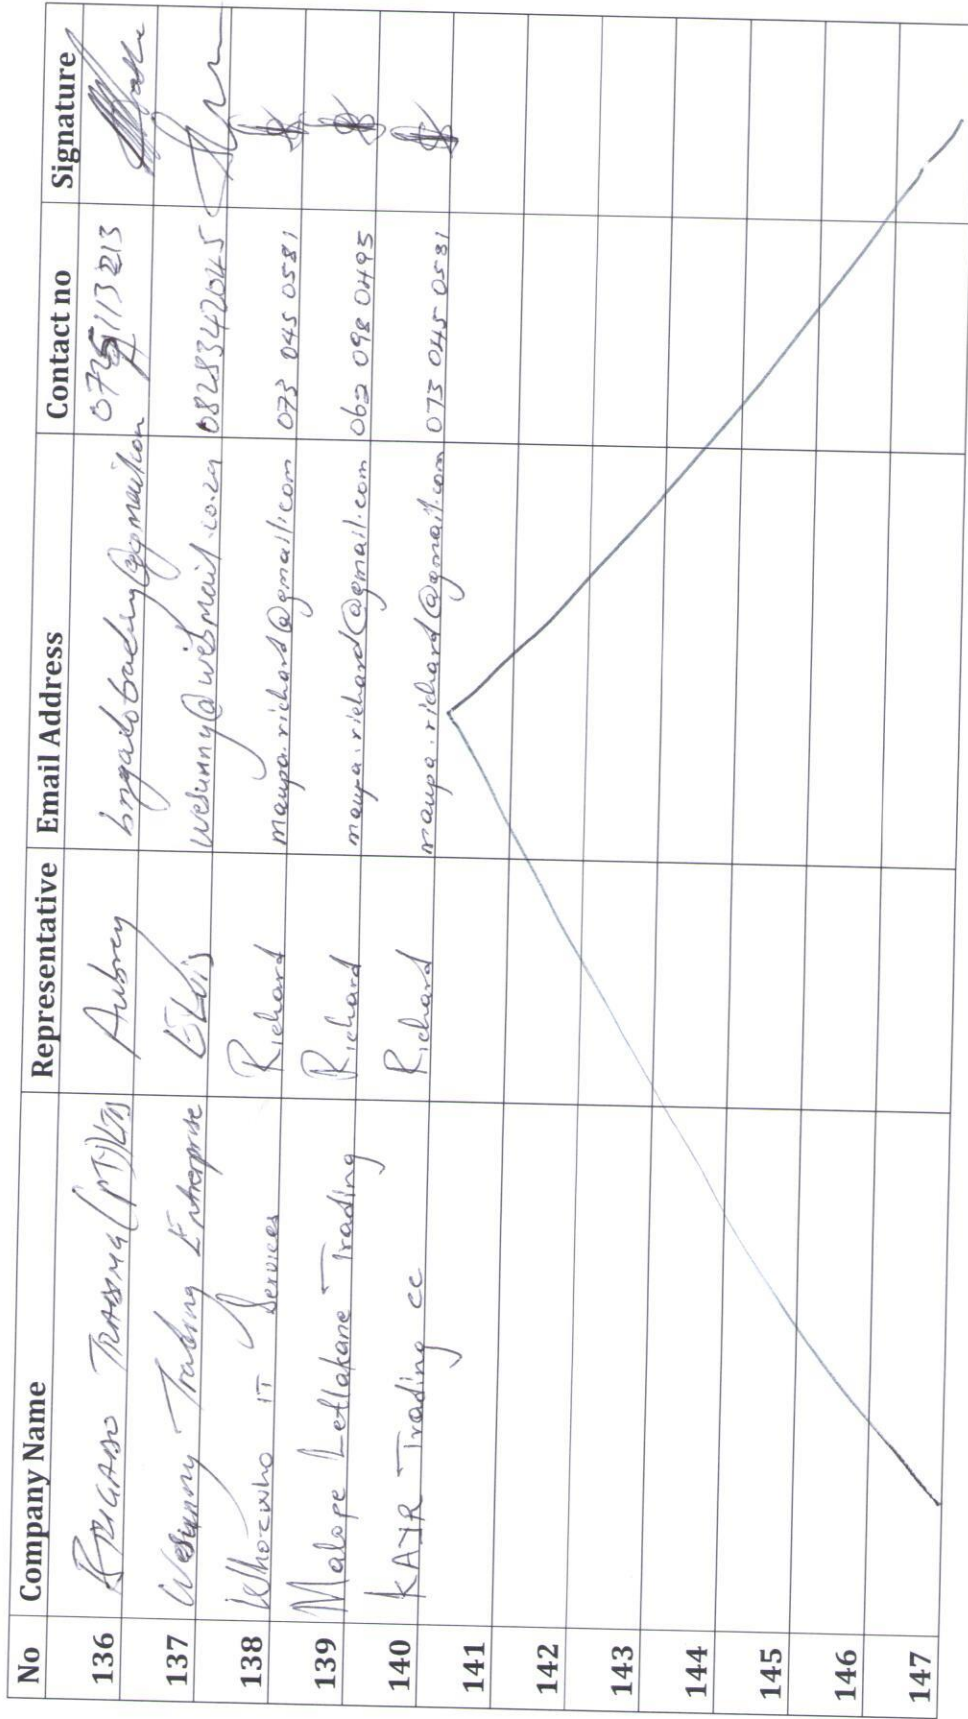 No Company Name Representative Email Address Contact no Signature
136 TRADING (PTY) LTD Aubrey
137 Wesunny Trading Enterprise ELVIS wesunny@webmail.co.za 0828342045
138 Whozwho IT Services Richard maupa.richard@gmail.com 073 045 0581
139 Malope Letlakane Trading Richard maupa.richard@gmail.com 062 098 0495
140 KAYR Trading cc Richard maupa.richard@gmail.com 073 045 0581
141
142
143
144
145
146
147